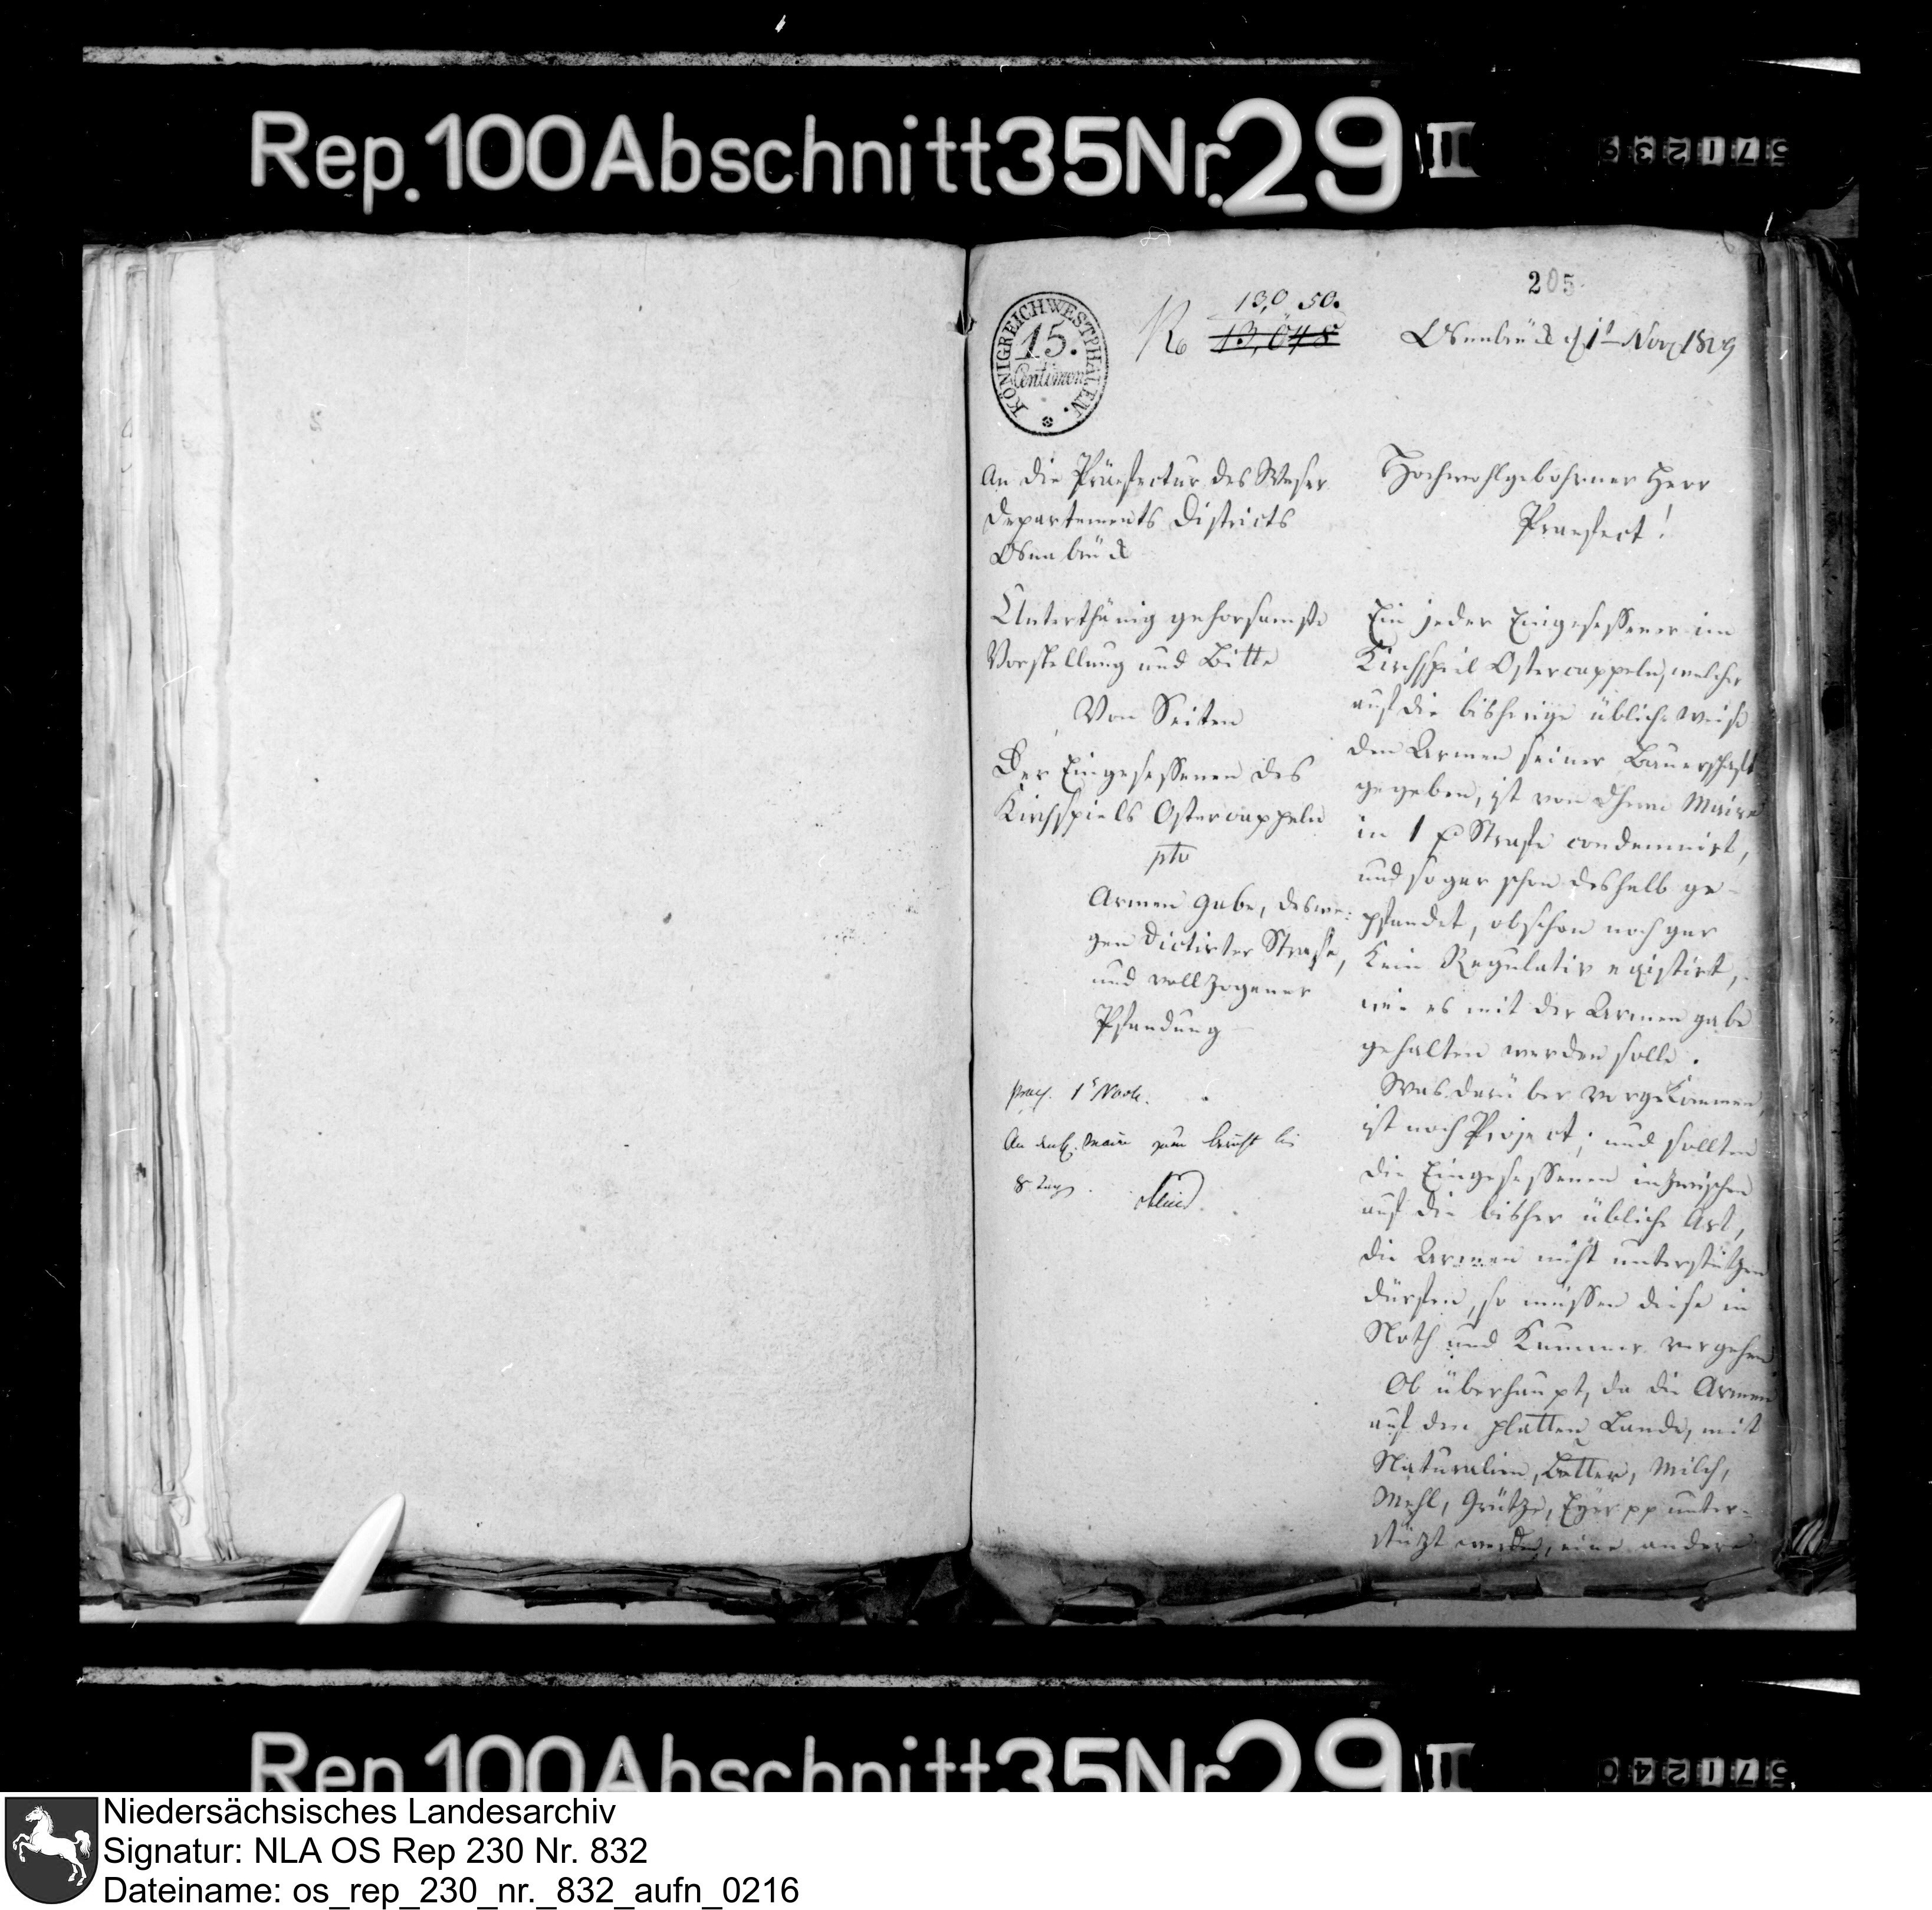 Rep. 100 Abschnitt 35 Nr. 29 II
571239
205.
KÖNIGREICH WESTPHALEN.
15.
Centimen
13,050.
No 13,048
Osnabrück d 1t Nov 1809
An die Präfectur des Weser
Departements Districts
Osnabrück
Unterthänig gehorsamste
Vorstellung und Bitte
Von Seiten
Der Eingesessenen des
Kirchspiels Ostercappeln
pto
Armen Gabe, deswe:
gen dictirter Strafe,
und vollzogener
Pfandung
praes. 1t Novbr.
An den H. Maire zum Bericht bei
8 Tag.
Hochwohlgebohrner Herr
Praefect!
Ein jeder Eingesessener im
Kirchspiel Ostercappeln, welcher
auf die bisherige übliche Weise
den Armen seiner Bauerschaft
gegeben, ist von dem Maire
in 1 Strafe condemnirt,
und sogar schon deshalb ge-
pfandet, obschon noch gar
kein Regulativ existirt,
wie es mit der Armen gabe
gehalten werden solle.
Was darüber vorgekommen,
ist noch Project; und sollten
die Eingesessenen inzwischen
auf die bisher übliche Art,
die Armen nicht unterstützen
dürfen, so müssen diese in
Noth und Kummer vergehen
Ob überhaupt, da die Armen
auf den platten Lande, mit
Naturalien, Butter, Milch,
Mehl, Grütze, Eyer pp unter-
stützt werden, eine andere
Rep. 100 Abschnitt 35 Nr. 29 II
571240
Niedersächsisches Landesarchiv
Signatur: NLA OS Rep 230 Nr. 832
Dateiname: os_rep_230_nr._832_aufn_0216